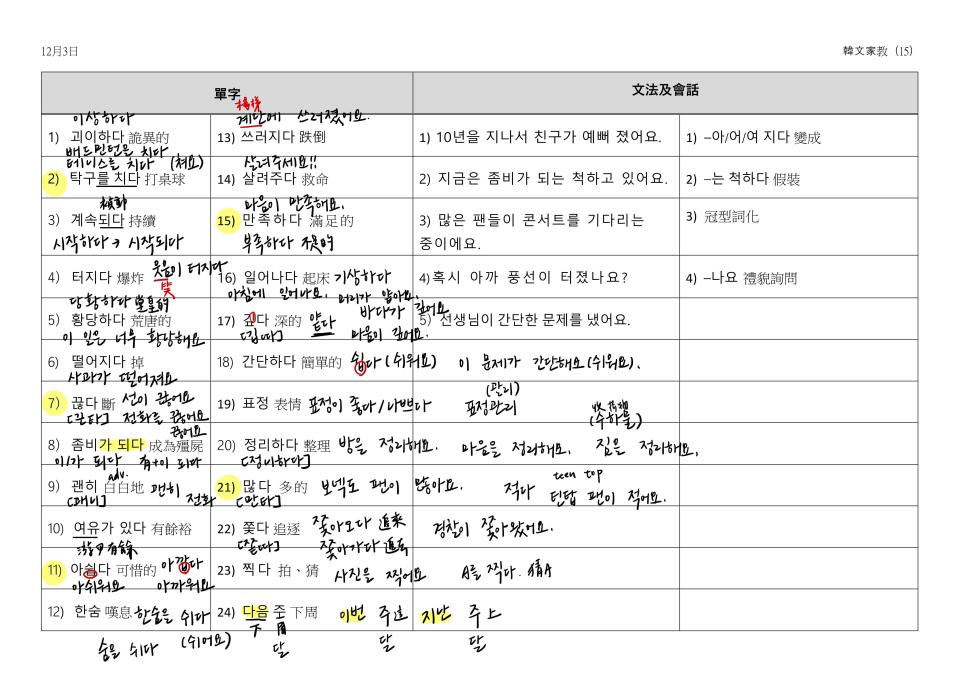 12月3日
韓文家教（15）
單字
文法及會話
이상하다
1) 괴이하다 詭異的
배드민턴을 치다
테니스를 치다 (쳐요)
2) 탁구를 치다 打桌球
被動
3) 계속되다 持續
시작하다 → 시작되다
4) 터지다 爆炸
웃음이 터지다
笑
당황하다
5) 황당하다 荒唐的
이 일은 너무 황당해요
6) 떨어지다 掉
사과가 떨어져요
7) 끊다 斷 선이 끊어요
[끈타] 전화를 끊어요
끊어요
8) 좀비가 되다 成為殭屍
이/가 되다 有+이 되다
adv.
9) 괜히 白白地 괜히 전화
[괘니]
10) 여유가 있다 有餘裕
11) 아쉽다 可惜的 아깝다
아쉬워요 아까워요
12) 한숨 嘆息 한숨을 쉬다
숨을 쉬다 (쉬어요)
樓梯
계단에 쓰러졌어요.
13) 쓰러지다 跌倒
살려주세요!!
14) 살려주다 救命
마음이 만족해요.
15) 만족하다 滿足的
부족하다 不足的
16) 일어나다 起床 기상하다
아침에 일어나요. 머리가 얇아요.
17) 깊다 深的 얕다 바다가 깊어요
[깁따] 마음이 깊어요.
18) 간단하다 簡單的 쉽다 (쉬워요) 이 문제가 간단해요(쉬워요).
19) 표정 表情 표정이 좋다/나쁘다 표정관리
(관리)
(수하물)
20) 정리하다 整理 방을 정리해요. 마음을 정리해요. 짐을 정리해요.
[정니하다]
21) 많다 多的 보넥도 팬이 많아요. 적다 틴탑 팬이 적어요.
teen top
[만타]
22) 쫓다 追逐 쫓아오다 追來 경찰이 쫓아왔어요.
[쫃따] 쫓아가다 追去
23) 찍다 拍、猜 사진을 찍어요 A를 찍다. 猜A
24) 다음 주 下周 이번 주 這 지난 주 上
下 月
달 달 달
1) 10년을 지나서 친구가 예뻐 졌어요.
2) 지금은 좀비가 되는 척하고 있어요.
3) 많은 팬들이 콘서트를 기다리는
중이에요.
4)혹시 아까 풍선이 터졌나요?
5) 선생님이 간단한 문제를 냈어요.
1) –아/어/여 지다 變成
2) –는 척하다 假裝
3) 冠型詞化
4) –나요 禮貌詢問